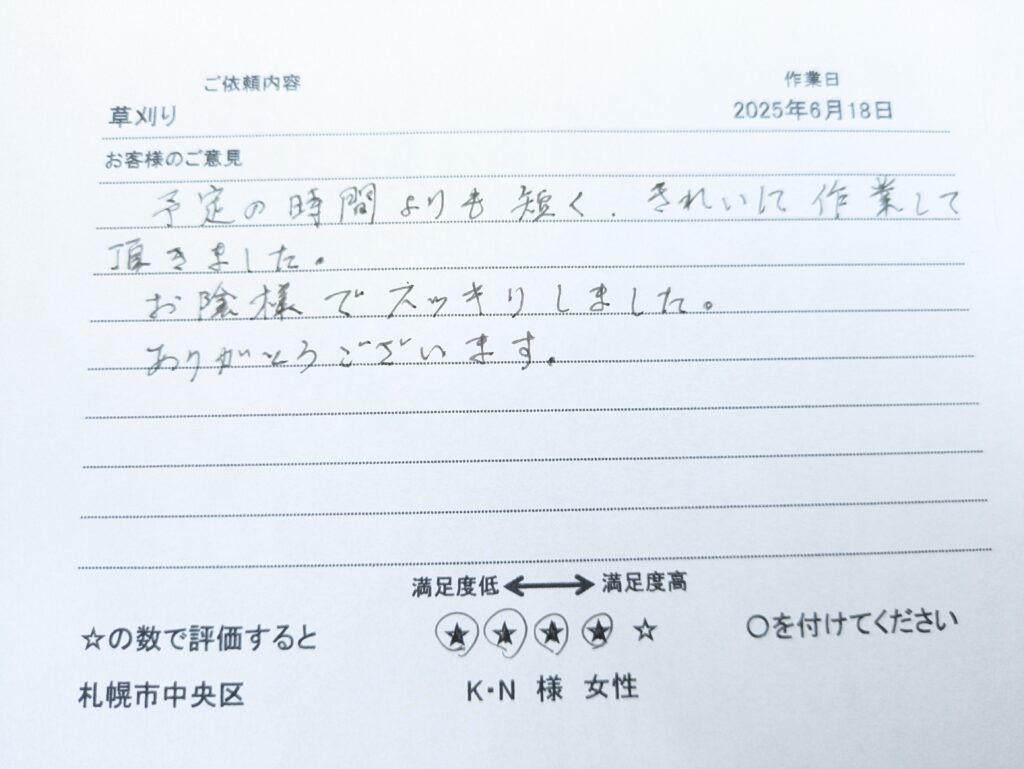 ご依頼内容 作業日
草刈り 2025年6月18日
お客様のご意見
予定の時間よりも短く、きれいに作業して
頂きました。
お陰様でスッキリしました。
ありがとうございます。
満足度低 ⟷ 満足度高
☆の数で評価すると ★★★★☆ 〇を付けてください
札幌市中央区 K・N 様 女性